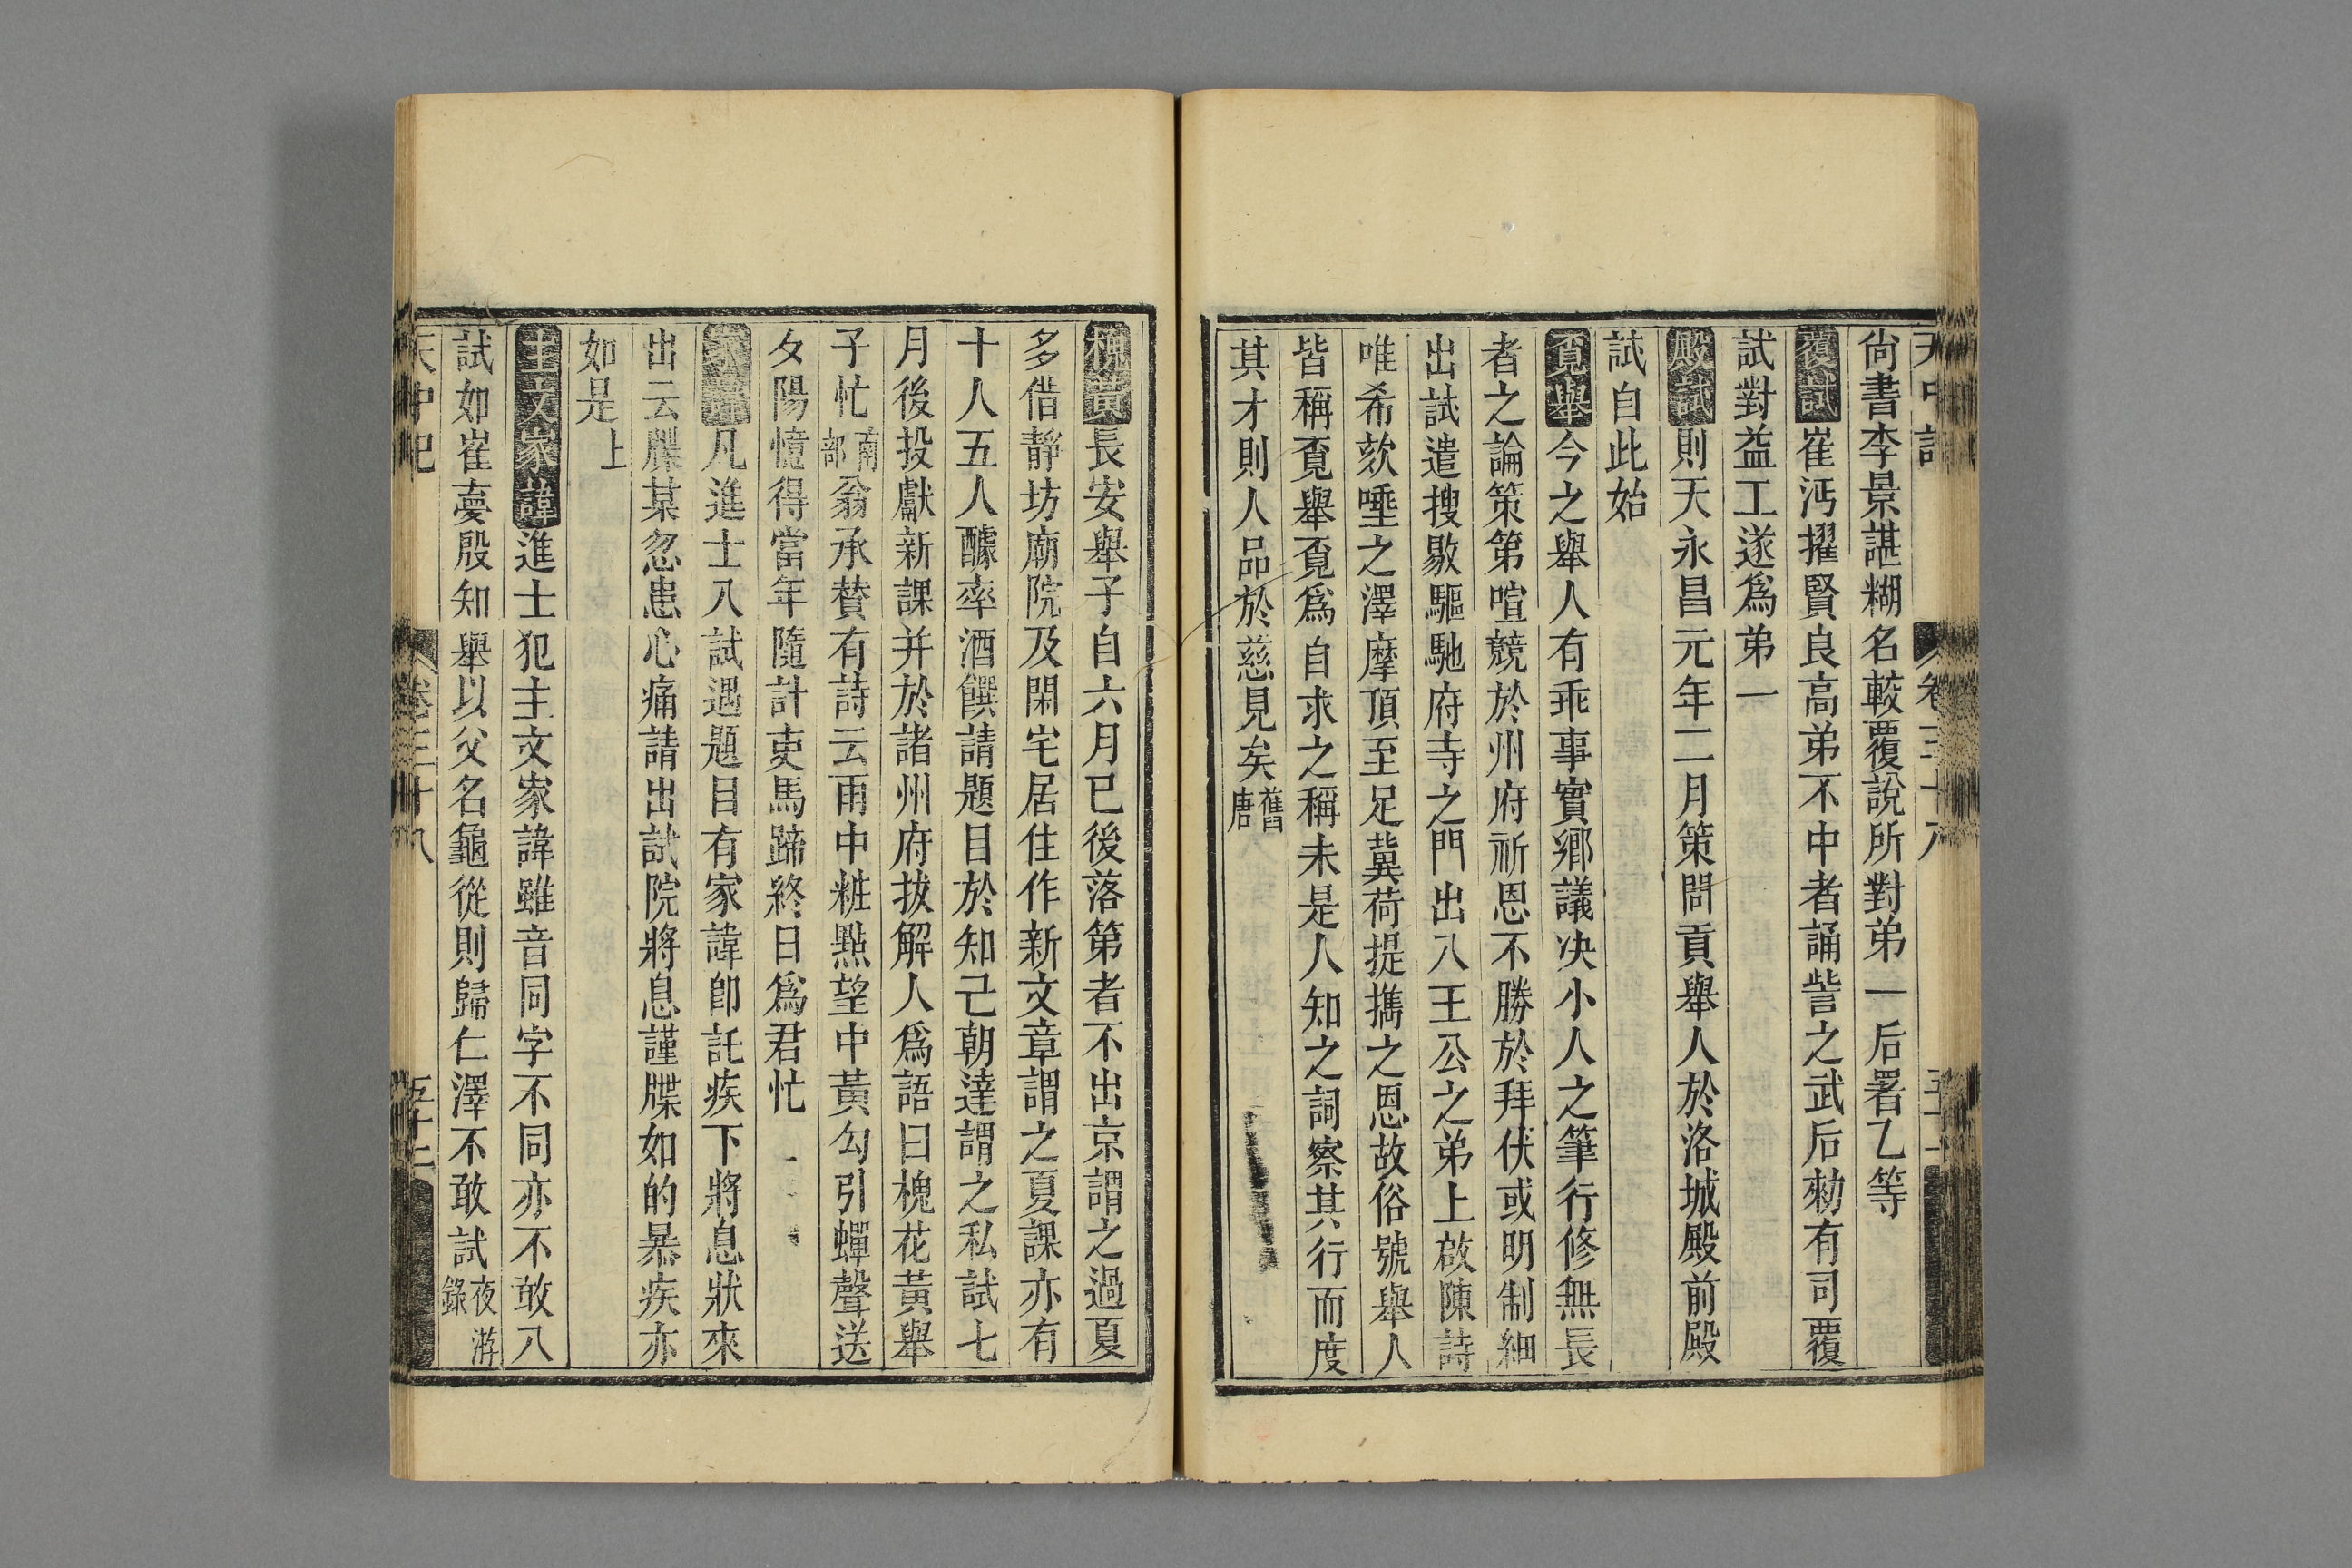 尙書李景諶糊名較覆說所對弟一后署乙等
覆試崔沔擢賢良高弟不中者誦訾之武后勑有司覆
試對益工遂爲弟一
殿試則天永昌元年二月策問貢舉人於洛城殿前殿
試自此始
覔舉今之舉人有乖事實鄉議决小人之筆行修無長
者之論策第喧競於州府祈恩不勝於拜伏或明制細
出試遣搜敭驅馳府寺之門出入王公之弟上啟陳詩
唯希欬唾之澤摩頂至足冀荷提擕之恩故俗號舉人
皆稱覔舉覔爲自求之稱未是人知之詞察其行而度
其才則人品於慈見矣舊唐
槐黃長安舉子自六月已後落第者不出京謂之過夏
多借靜坊廟院及閑宅居住作新文章謂之夏課亦有
十人五人醵率酒饌請題目於知己朝達謂之私試七
月後投獻新課并於諸州府拔解人爲語曰槐花黃舉
子忙南部翁承賛有詩云雨中粧點望中黃勾引蟬聲送
夕陽憶得當年隨計吏馬蹄終日爲君忙
家諱凡進士入試遇題目有家諱卽託疾下將息狀來
出云牒某忽患心痛請出試院將息謹牒如的暴疾亦
如是上
主文家諱進士犯主文家諱雖音同字不同亦不敢入
試如崔夢殷知舉以父名龜從則歸仁澤不敢試夜游錄
天中記 卷三十八